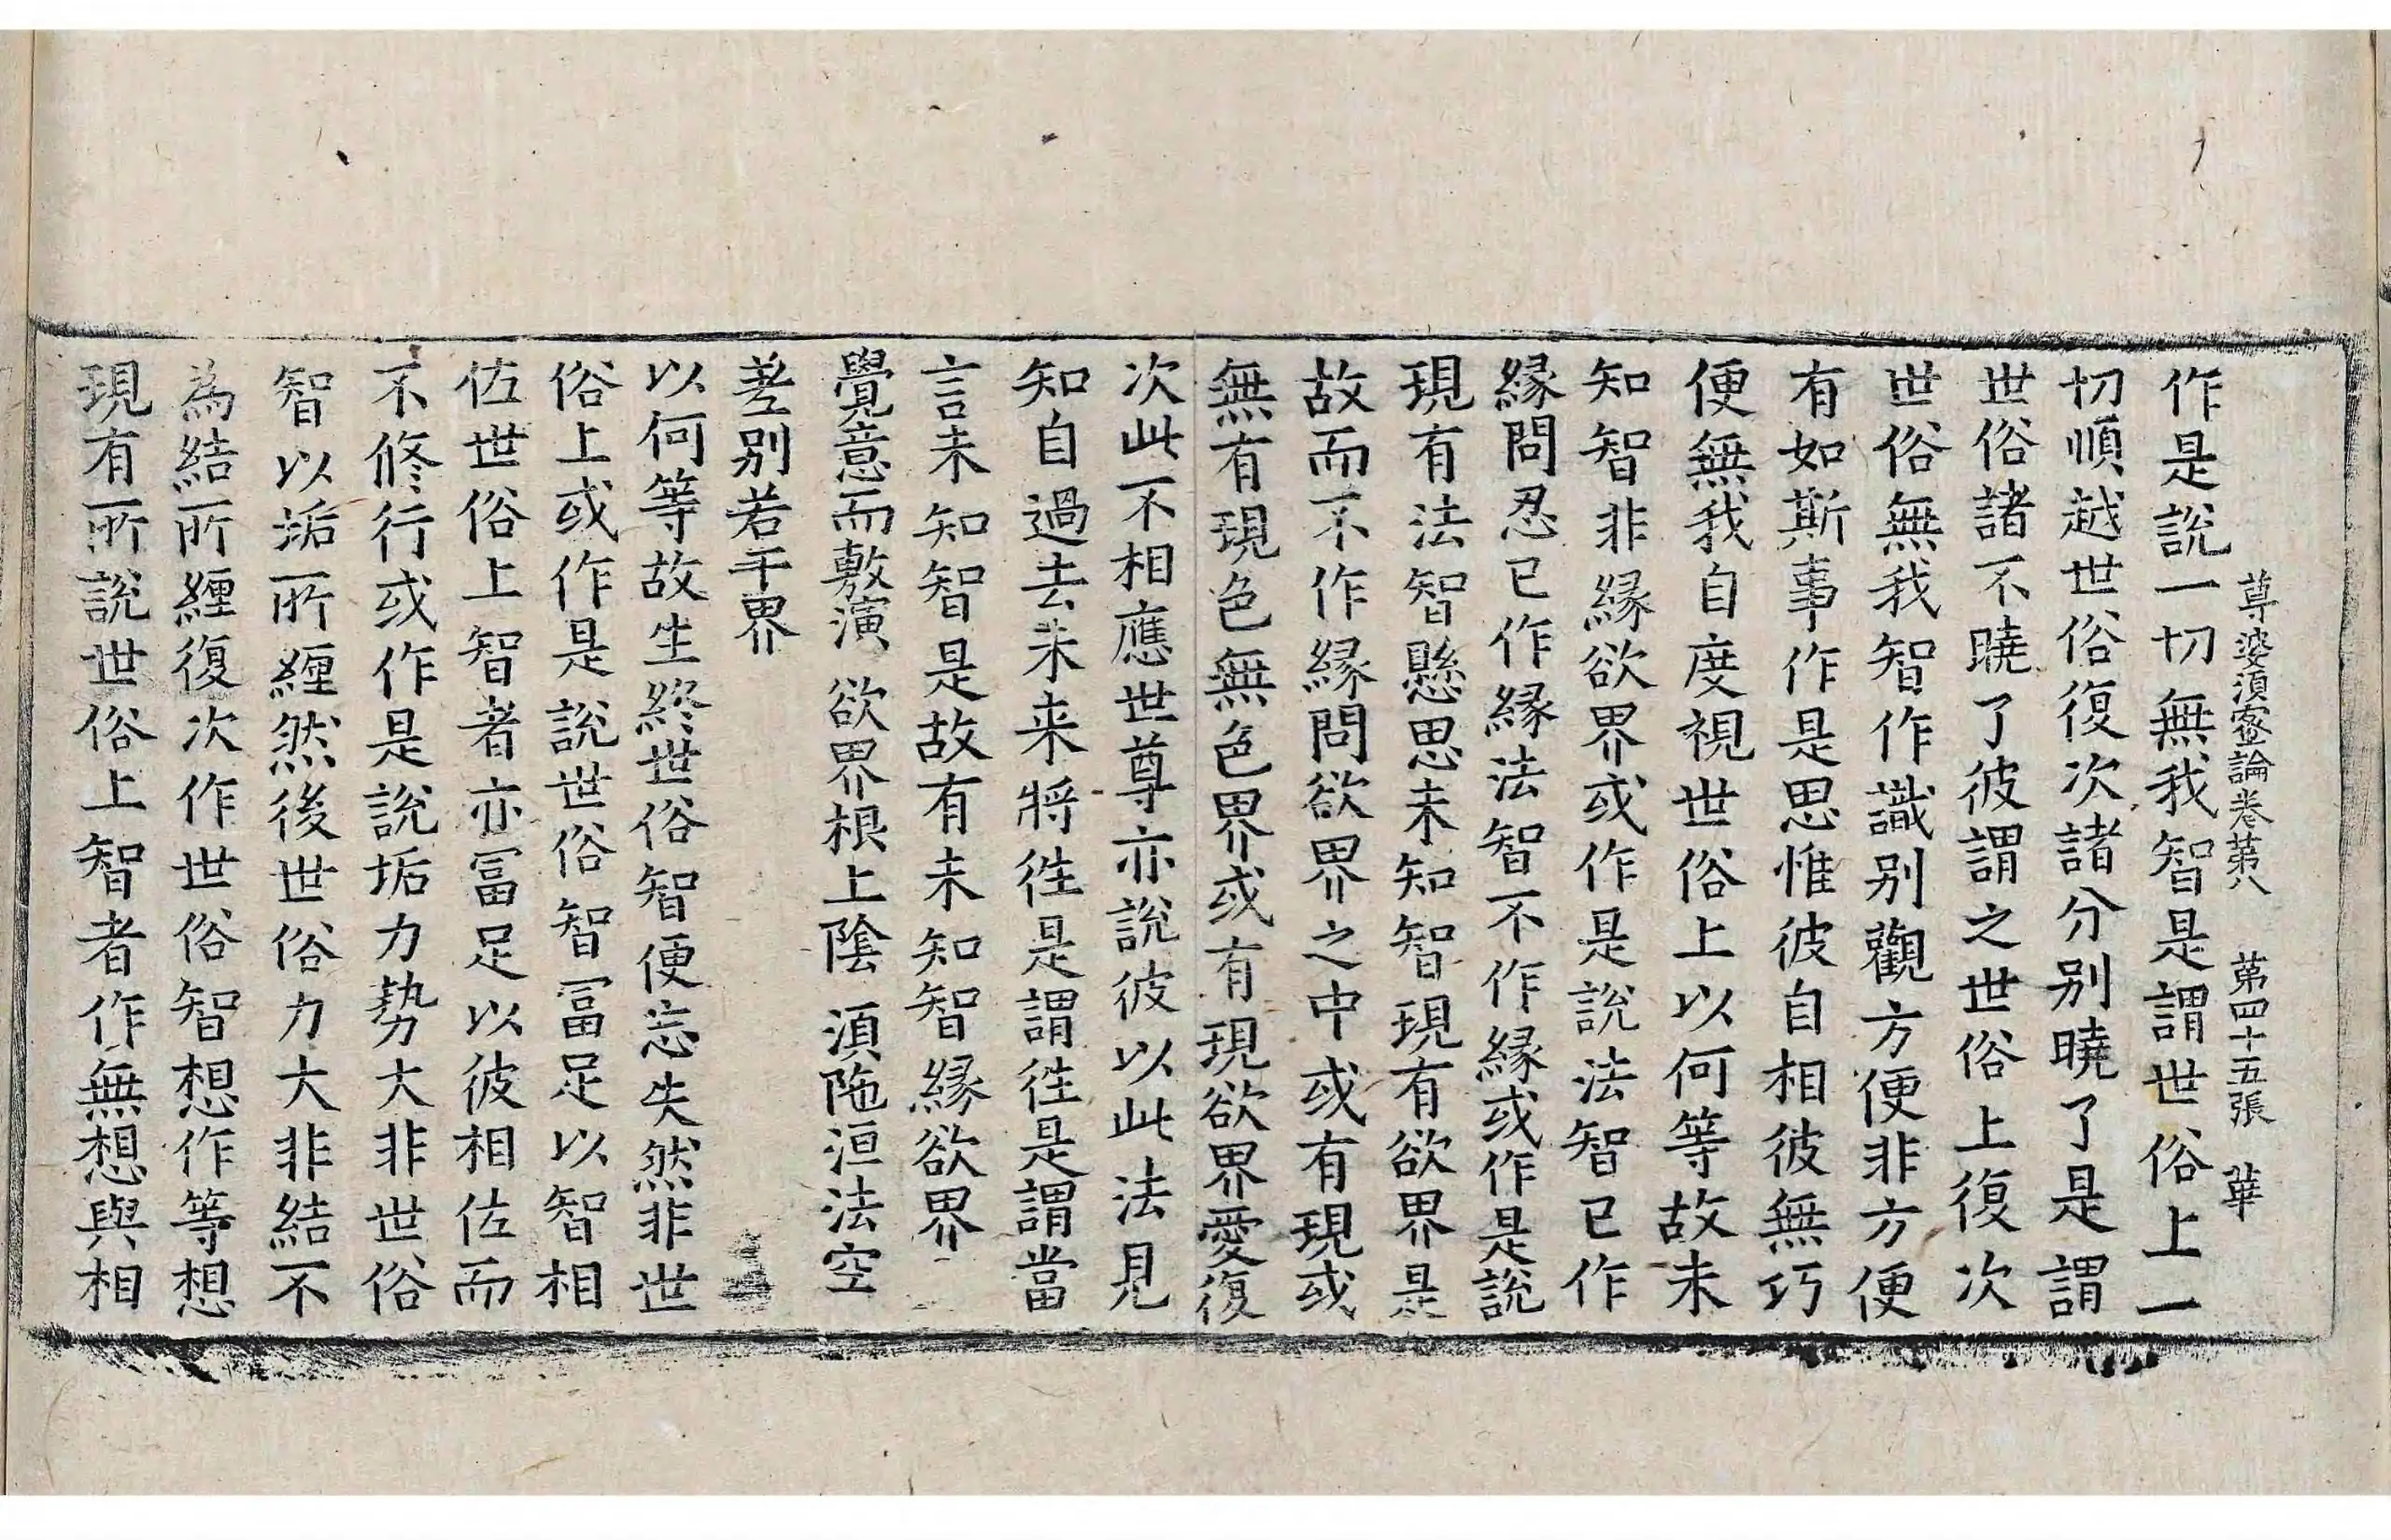 尊婆湏蜜論卷苐八　苐四十五張　華
作是說一切無我智是謂世俗上一
切順越世俗復次諸分别曉了是謂
世俗諸不曉了彼謂之世俗上復次
世俗無我智作識别觀方便非方便
有如斯事作是思惟彼自相彼無巧
便無我自度視世俗上以何等故未
知智非縁欲界或作是說法智已作
縁問忍已作縁法智不作縁或作是說
現有法智懸思未知智現有欲界是
故而不作縁問欲界之中或有現或
無有現色無色界或有現欲界愛復
次此不相應世尊亦說彼以此法見
知自過去未来將徃是謂徃是謂當
言未知智是故有未知智縁欲界
覺意而敷演　欲界根上陰　湏陁洹法空
差别若干界
以何等故生終世俗智便忘失然非世
俗上或作是說世俗智冨足以智相
佐世俗上智者亦冨足以彼相佐而
不修行或作是說垢力勢大非世俗
智以垢所纒然後世俗力大非結不
為結所纒復次作世俗智想作等想
現有所說世俗上智者作無想與相